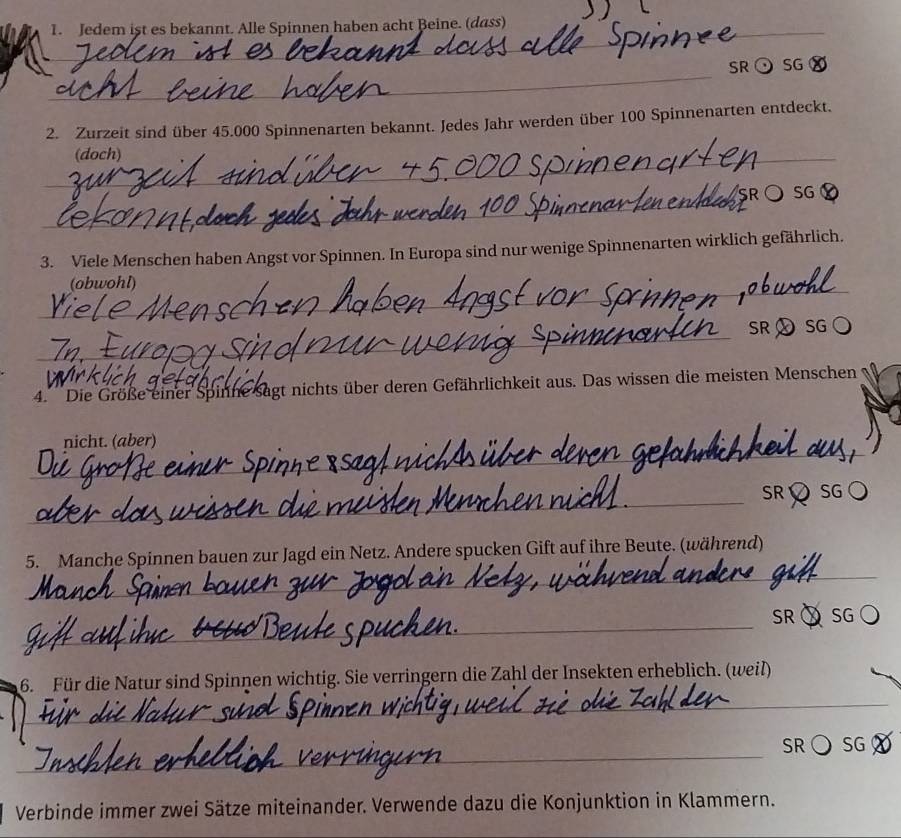 1. Jedem ist es bekannt. Alle Spinnen haben acht Beine. (dass)
Jedem ist es bekannt dass alle Spinnee
acht beine haben
SR SG
2. Zurzeit sind über 45.000 Spinnenarten bekannt. Jedes Jahr werden über 100 Spinnenarten entdeckt.
(doch)
zurzeit sind über 45.000 spinnenarten
bekonnt, doch jedes Jahr werden 100 Spinnenarten entdeckt
SR SG
3. Viele Menschen haben Angst vor Spinnen. In Europa sind nur wenige Spinnenarten wirklich gefährlich.
(obwohl)
Viele Menschen haben Angst vor Sprinnen, obwohl
In Europa sind nur wenig spinnenarten
SR SG
wirklich gefährlich
4. Die Größe einer Spinne sagt nichts über deren Gefährlichkeit aus. Das wissen die meisten Menschen
nicht. (aber)
Die Große einer Spinne sagt nichts über deren gefahrlichkeit aus,
aber das wissen die meisten Menschen nicht.
SR SG
5. Manche Spinnen bauen zur Jagd ein Netz. Andere spucken Gift auf ihre Beute. (während)
Manch Spinnen bauen zur Jagd ain Netz, während andere gift
gift auf ihre Beute spucken.
SR SG
6. Für die Natur sind Spinnen wichtig. Sie verringern die Zahl der Insekten erheblich. (weil)
Für die Natur sind Spinnen wichtig, weil sie die Zahl der
Insekten erheblich verringern
SR SG
Verbinde immer zwei Sätze miteinander. Verwende dazu die Konjunktion in Klammern.